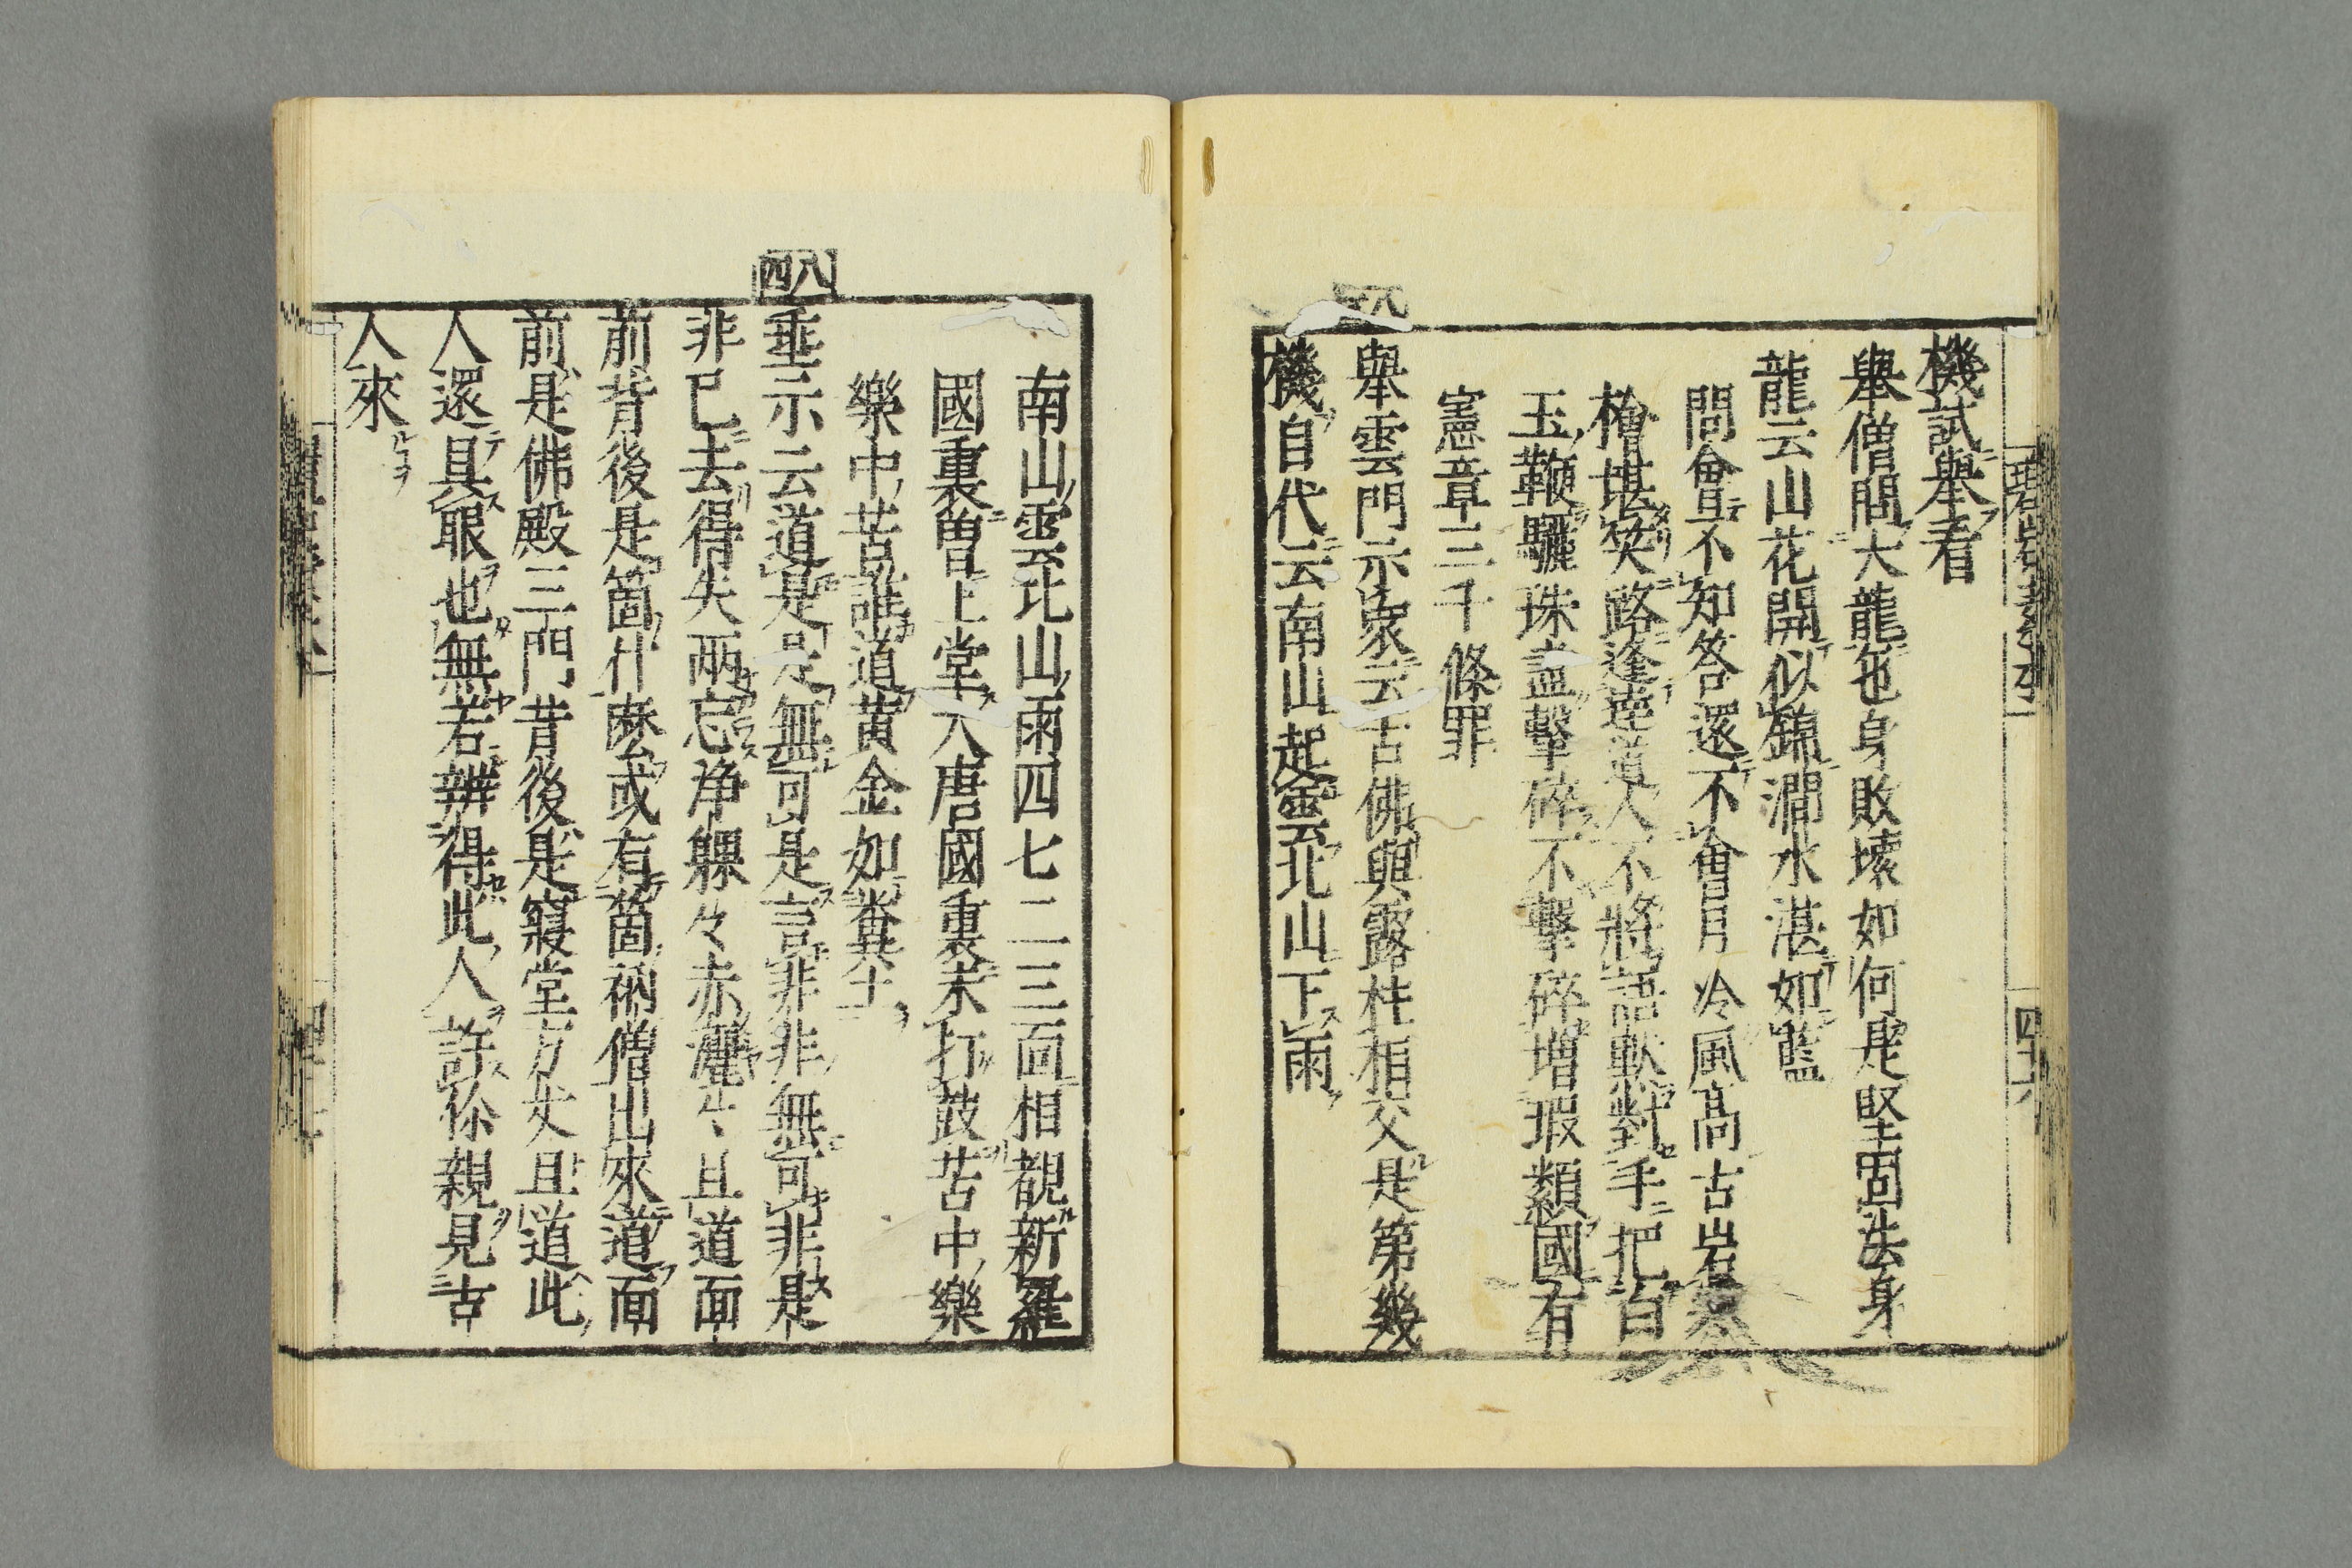 機試舉看
舉僧問大龍色身敗壞如何是堅固法身
龍云山花開似錦澗水湛如藍
問曾不知答還不會月冷風高古岩寒
檜堪笑路逢達道人不將語默對手把白
玉鞭驪珠盡擊碎不擊碎增瑕纇國有
憲章三千條罪
八
舉雲門示衆云古佛與露柱相交是第幾
機自代云南山起雲北山下雨
四十六
南山雲北山雨四七二三面相覩新羅
國裏曽上堂大唐國裏未打鼓苦中樂
樂中苦誰道黄金如糞土
八四
垂示云道是是無可是言非非無可非是
非已去得失兩忘淨躶々赤灑々且道面
前背後是箇什麽或有箇衲僧出來道面
前是佛殿三門背後是寢堂方丈且道此
人還具眼也無若辨得此人許你親見古
人來